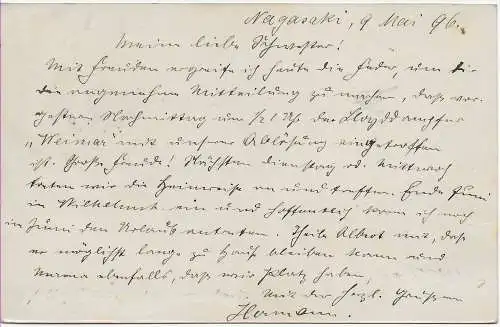 Nagasaki, 9 Mai 96.
Meine liebe Schwester!
Mit Freuden ergreife ich heute die Feder, um Dir
die angenehme Mitteilung zu machen, daß vor-
gestern Nachmittag um ½1 Uhr der Lloyddampfer
„Weimar" mit unserer Ablösung eingetroffen
ist. Große Freude! Nächsten Dienstag od. Mittwoch
treten wir die Heimreise an und treffen Ende Juni
in Wilhelmsh. ein und hoffentlich kann ich noch
im Juni den Urlaub antreten. Theile Albert mit, daß
er möglichst lange zu Haus bleiben kann und
Mama ebenfalls, daß wir Platz haben.
Mit den herzl. Grüssen
Hermann.